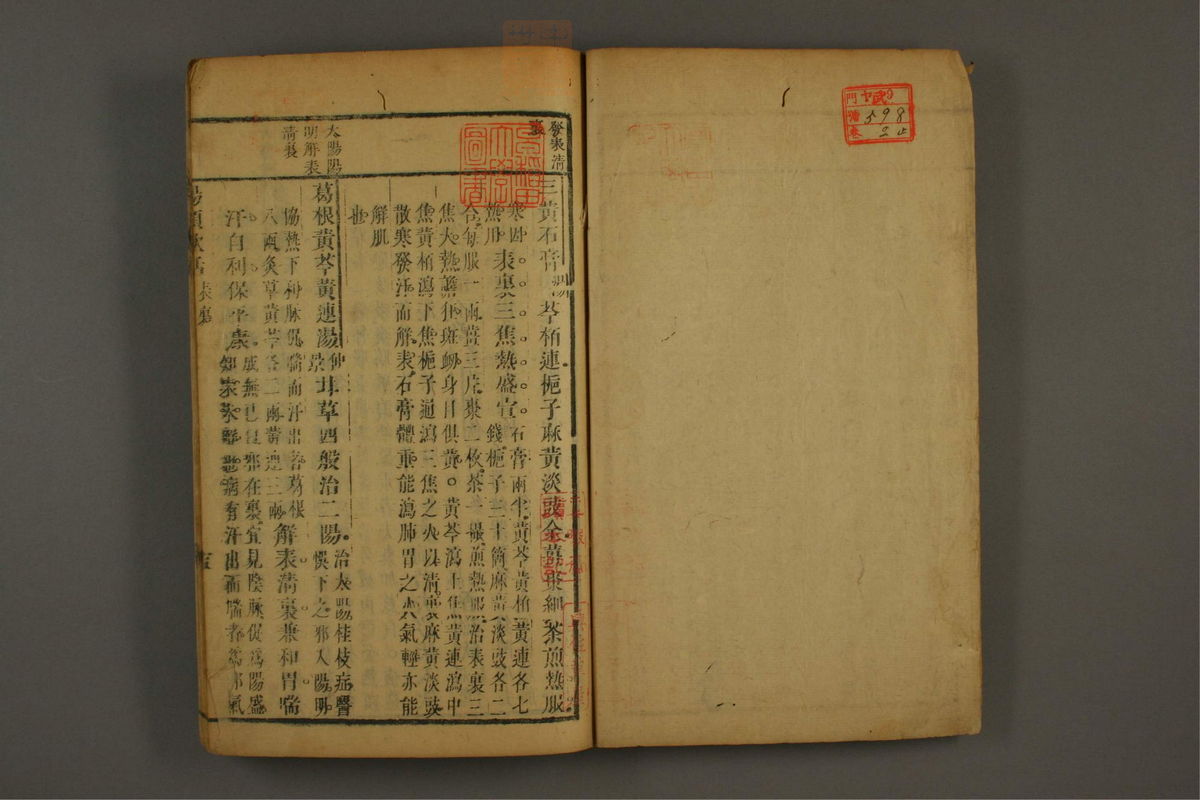 發表清
裏
三黃石膏湯芩栢連梔子麻黃淡豉全薑棗細茶煎熱服
寒因石膏兩半黃芩黃栢黃連各七
熱用表裏三焦熱盛宣錢梔子三十箇麻黃淡豉各二
合每服一兩薑三片棗二枚茶一撮煎熱服治表裏三
焦大熱譫狂斑衂身目俱黃黃芩瀉上焦黃連瀉中
焦黃栢瀉下焦梔子通瀉三焦之火以清裏麻黃淡豉
散寒發汗而解表石膏體重能瀉肺胃之火氣輕亦能
解肌
也
太陽陽
明解表
清裏
葛根黃芩黃連湯仲景甘草四般治二陽治太陽桂枝症醫
悞下之邪入陽明
協熱下利脉促喘而汗出者葛根
八兩炙草黃芩各二兩黃連三兩解表清裏兼和胃喘
汗自利保平康成無已曰邪在裏宜見陰脉促爲陽盛
知表未解也病有汗出而喘者爲邪氣
湯頭歌括 表裏
早稻田大學圖書
門
號 598
卷